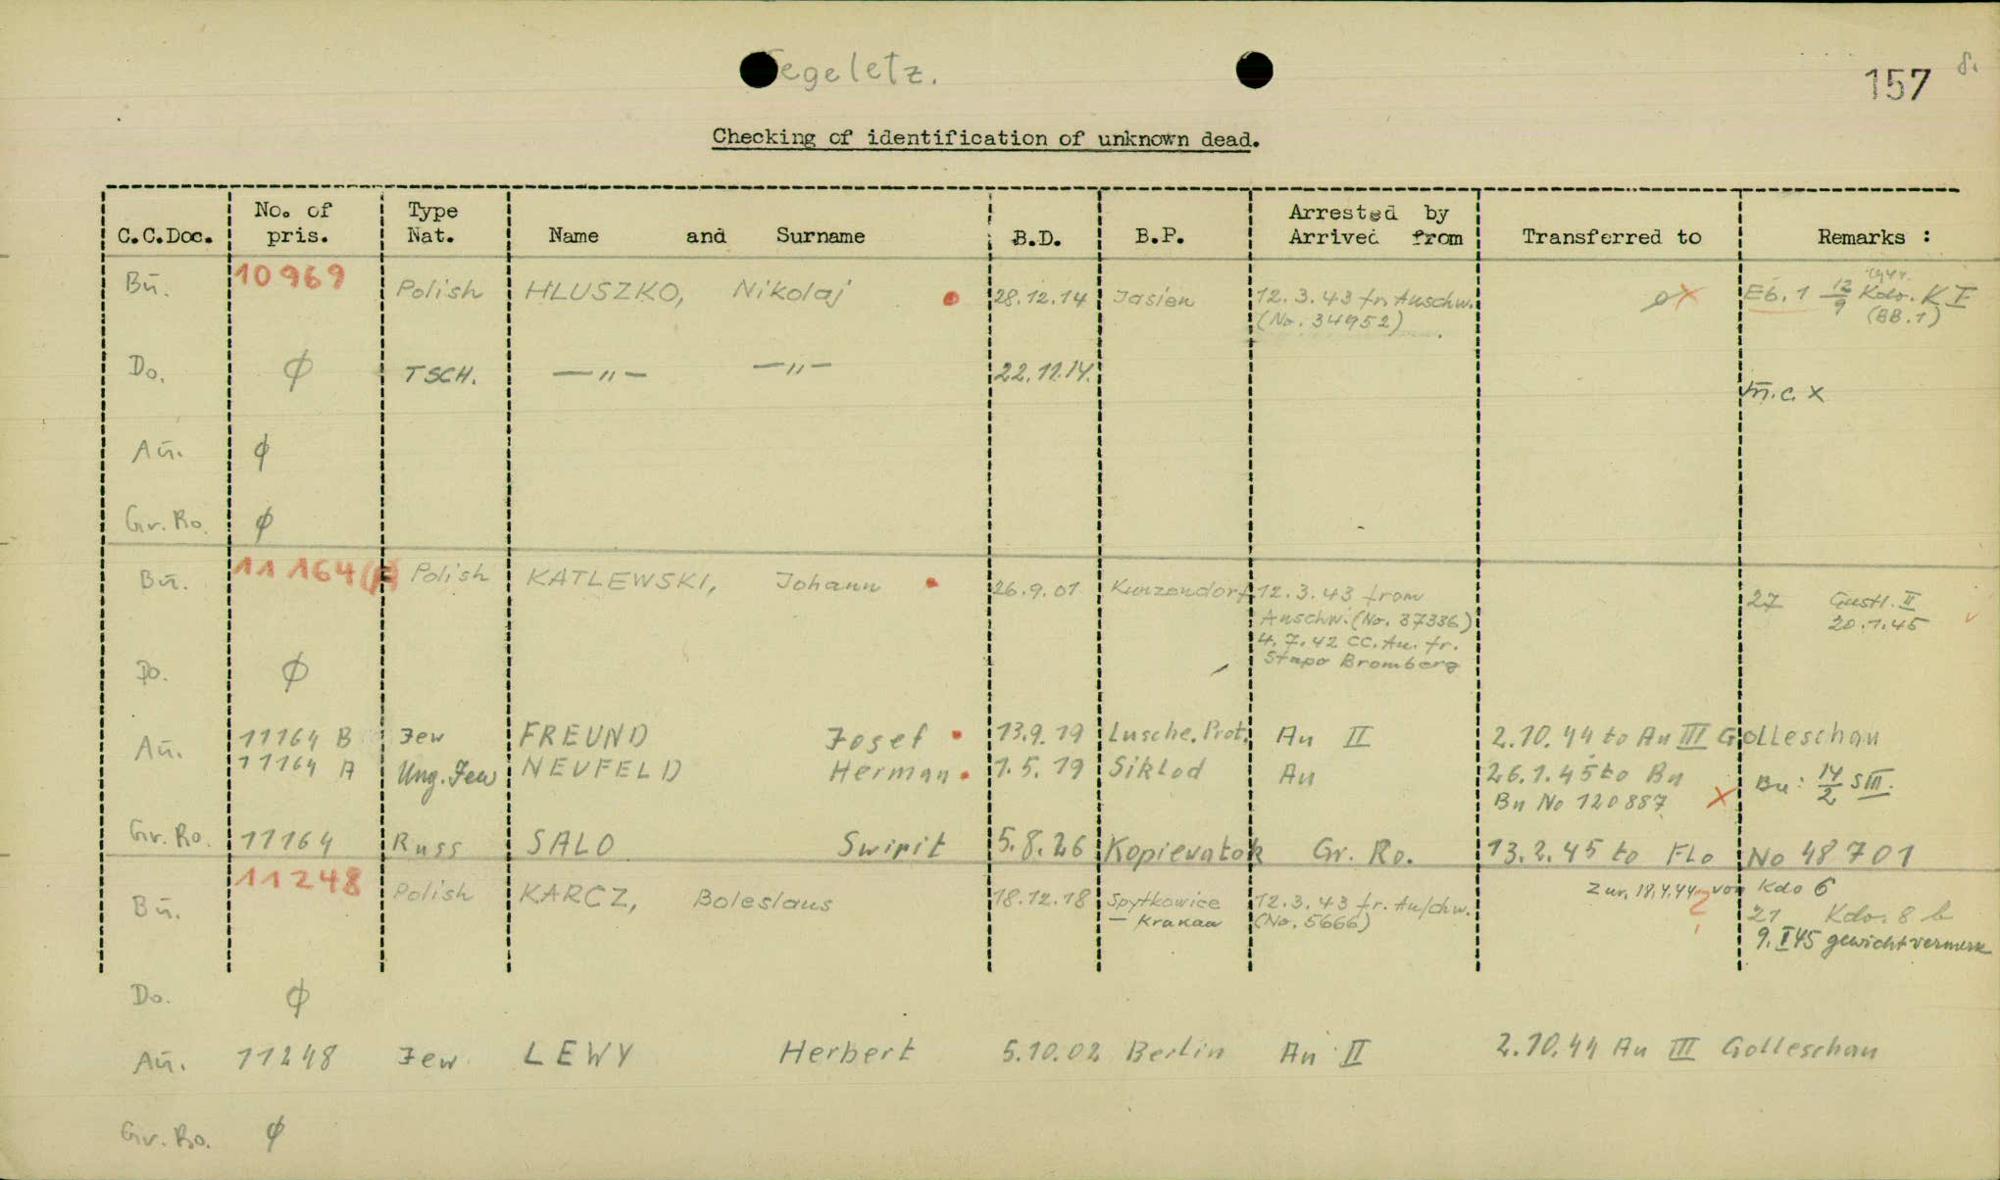 egeletz.
157
Checking of identification of unknown dead.
C.C.Doc. No. of pris. Type Nat. Name and Surname B.D. B.P. Arrested by Arrived from Transferred to Remarks :
Bū. 10969 Polish HLUSZKO, Nikolaj 28.12.14 Jasien 12.3.43 fr. Auschw. Eb.1 12/9 Kdo. K I
(No. 34952) (BB.1)
Do. ϕ TSCH. —〃— —〃— 22.11.14.
m.c. x
Aū. ϕ
Gr. Ro. ϕ
Bū. 11164 Polish KATLEWSKI, Johann 26.9.01 Kunzendorf 12.3.43 from 27 Gustl. II
Auschw. (No. 37336) 20.1.45
4.7.42 CC. Au. fr.
Stapo Bromberg
Do. ϕ
Aū. 11164 B Jew FREUND Josef 13.9.19 Lusche. Prot. Au II 2.10.44 to Au III Golleschau
11164 A Ung. Jew NEUFELD Herman 1.5.19 Siklod Au 26.1.45 to Bu Bu: 14/2 S III.
Bu No 120887 x
Gr. Ro. 11164 Russ SALO Swirit 5.8.26 Kopievatok Gr. Ro. 13.2.45 to FLo No 48701
Bū. 11248 Polish KARCZ, Boleslaus 18.12.18 Spytkowice 12.3.43 fr. Au/chw. zur. 18.4.44 von Kdo 6
— Krakau (No. 5666) 21 Kdo. 8 b
9.I 45 gewichtvermerk
Do. ϕ
Aū. 11248 Jew LEWY Herbert 5.10.02 Berlin Au II 2.10.44 Au III Golleschau
Gr. Ro. ϕ